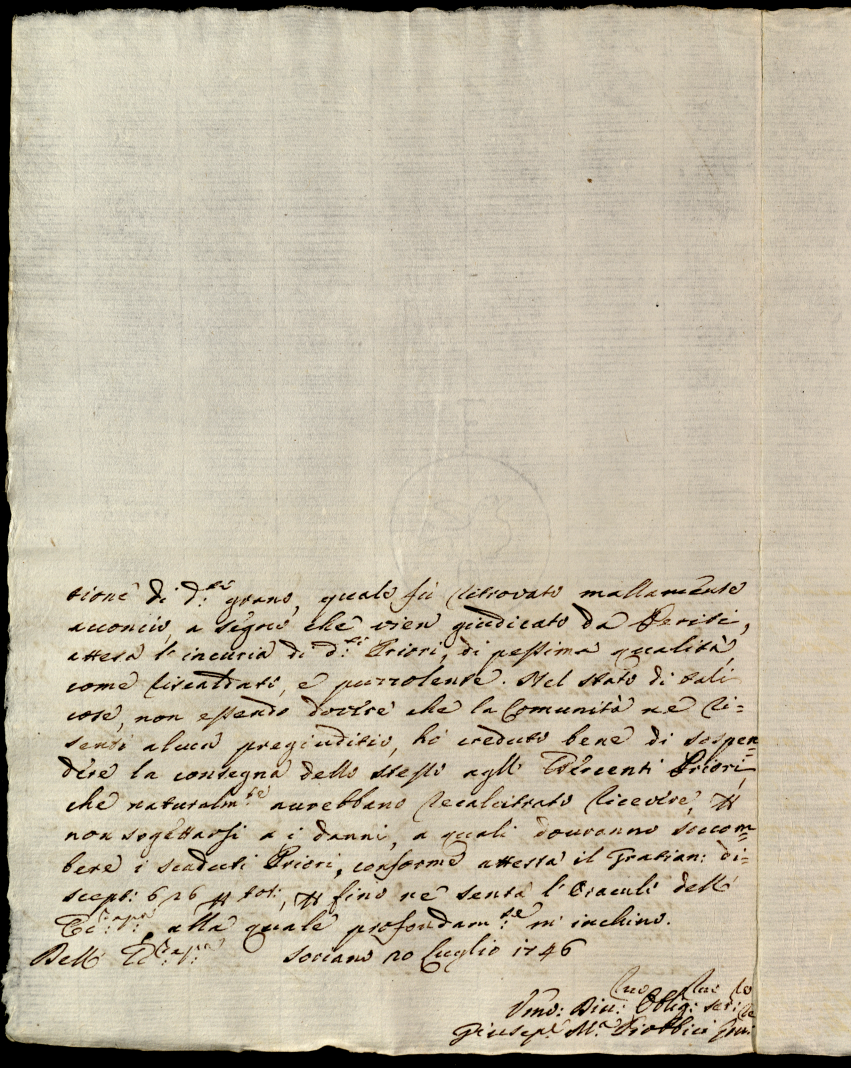 tione di d:to grano, quale fù ritrovato mallamente
acconcio, a segno che vien giudicato da Periti,
attesa l'incuria di d:ti Priori, di pessima qualità,
come riscaldati, e puzzolente. Nel stato di tali
cose, non essendo dovere che la Comunità ne ri=
senti alcun pregiuditio, ho creduto bene di sospen=
dere la consegna dello stesso agli Esercenti Priori,
che naturalm:te aurebbano recalcitrato ricevere,
non sogettarsi a i danni, a quali douranno soccom=
bere i scaduti Priori, conforme attesta il Gratian: di=
scept: 626 tot:, fino ne senta l'Oraculi dell
alla quale profondam:te m'inchino.
Dell Sociano 20 Luglio 1746
Vmo: Diu: Oblig:
Giusep: M.a